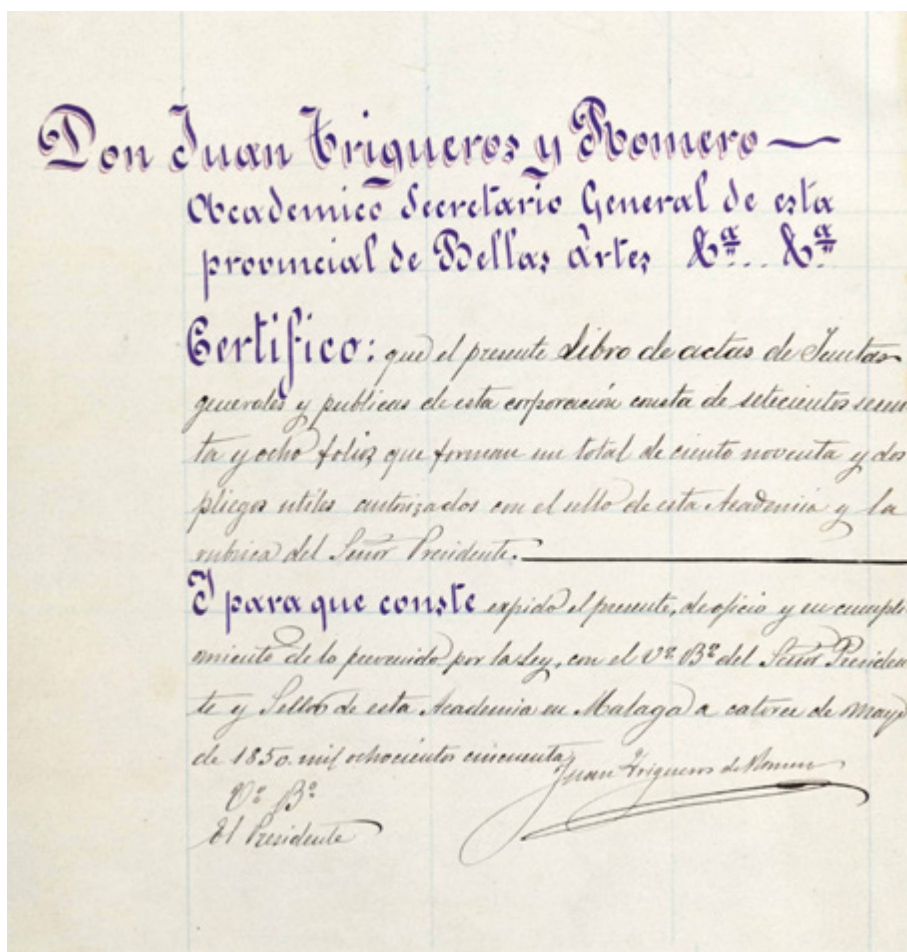 Don Juan Trigueros y Romero —
Academico Secretario General de esta
provincial de Bellas Artes &ª.. &ª
Certifico: que el presente Libro de actas de Juntas
generales y publicas de esta corporación consta de setecientos sesen
ta y ocho folios que forman un total de ciento noventa y dos
pliegos utiles autorizados con el sello de esta Academia y la
rubrica del Señor Presidente.
Y para que conste expido el presente, de oficio y en cumpli
miento de lo prevenido por la Ley, con el Vº Bº del Señor Presiden
te y Sello de esta Academia en Malaga a catorce de Mayo
de 1850. mil ochocientos cincuenta
Juan Trigueros de Romero
Vº Bº
El Presidente